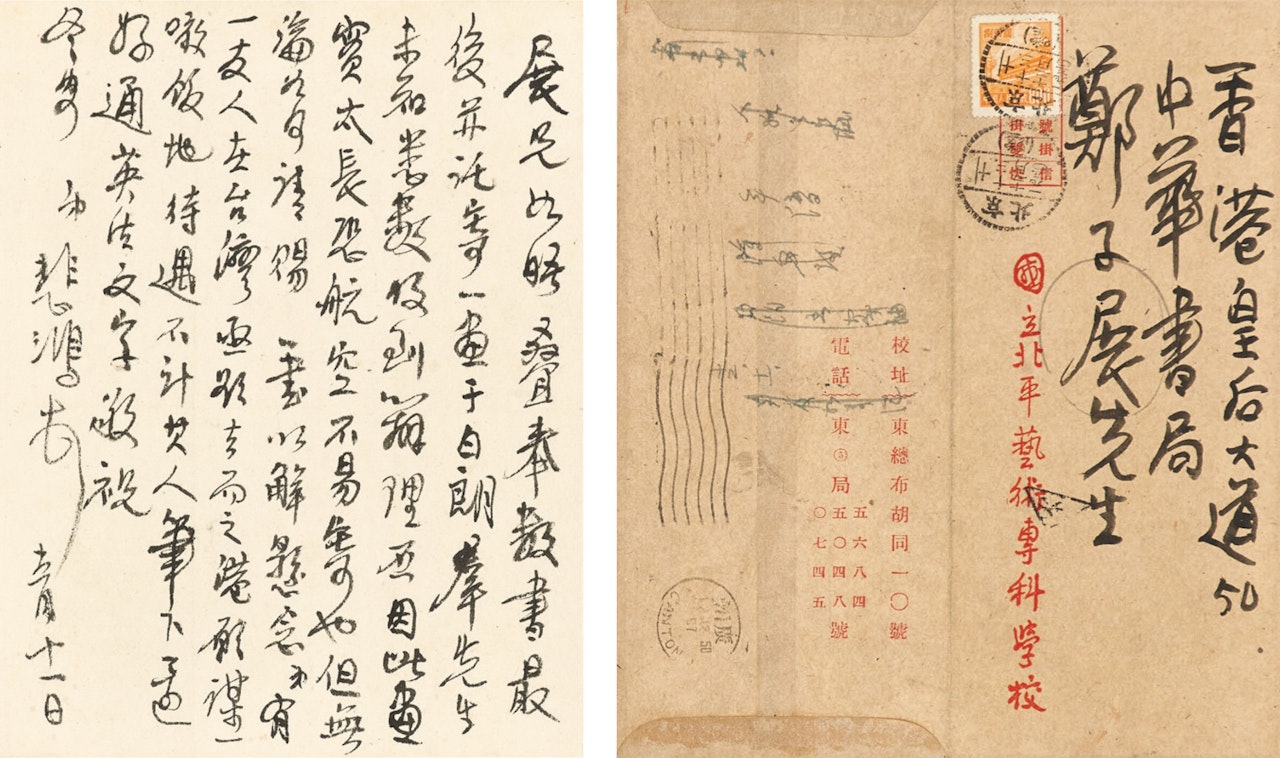 展兄如晤叠奉數書最
後并託寄一畫于白朗羣先生
未知悉數收到辦理否因此畫
實太長恐航空不易寄也但無
論如何請賜 一書以解懸念弟有
一友人在台灣亟欲去而之港願謀一
噉飯地待遇不計其人筆下還
好通英法文字敬祝
冬安 弟悲鴻
月十一日
香港皇后大道50
中華書局
鄭子展先生
國立北平藝術專科學校
校址 東總布胡同一〇號
電話 東局
五六八四
五〇四八號
〇七四五
北京
CANTON